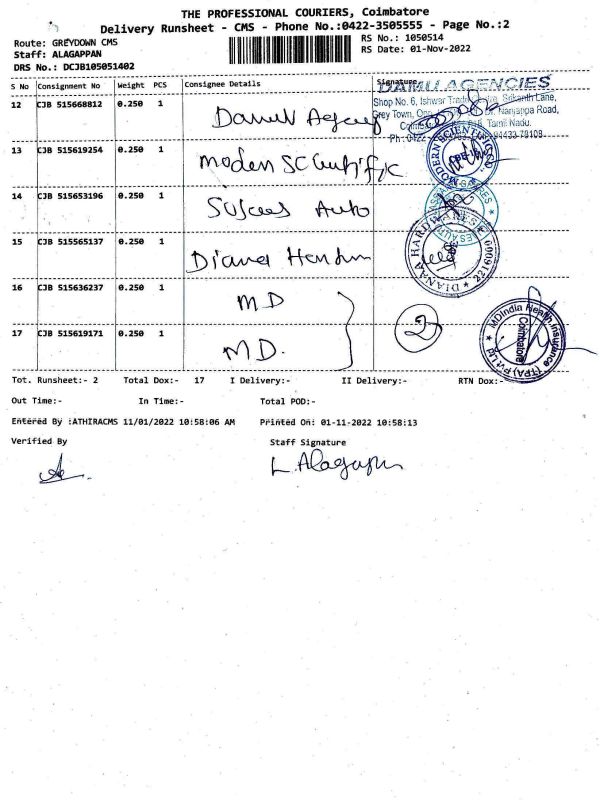 THE PROFESSIONAL COURIERS, Coimbatore
Delivery Runsheet - CMS - Phone No.:0422-3505555 - Page No.:2
Route: GREYDOWN CMS
RS No.: 1050514
Staff: ALAGAPPAN
RS Date: 01-Nov-2022
DRS No.: DCJB105051402
S No Consignment No Weight PCS Consignee Details Signature
DAMU AGENCIES
Shop No. 6, Ishwar Srikanth Lane,
12 CJB 515668812 0.250 1 Damu Agency
Grey Town, Nanjappa Road,
Tamil Nadu.
Ph: 0422 94433-78108
13 CJB 515619254 0.250 1 Moden Scientific
MODERN SCIENTIFIC CO.
CBE-18
14 CJB 515653196 0.250 1 Sujees Auto
15 CJB 515565137 0.250 1 Diana Hardware
DIANAA HARDWARES
2219009
16 CJB 515636237 0.250 1 MD
2
MDIndia Health Insurance (TPA) Pvt Ltd
Coimbatore
17 CJB 515619171 0.250 1 MD.
Tot. Runsheet:- 2 Total Dox:- 17 I Delivery:- II Delivery:- RTN Dox:-
Out Time:- In Time:- Total POD:-
Entered By :ATHIRACMS 11/01/2022 10:58:06 AM Printed On: 01-11-2022 10:58:13
Verified By Staff Signature
L. Alagappn